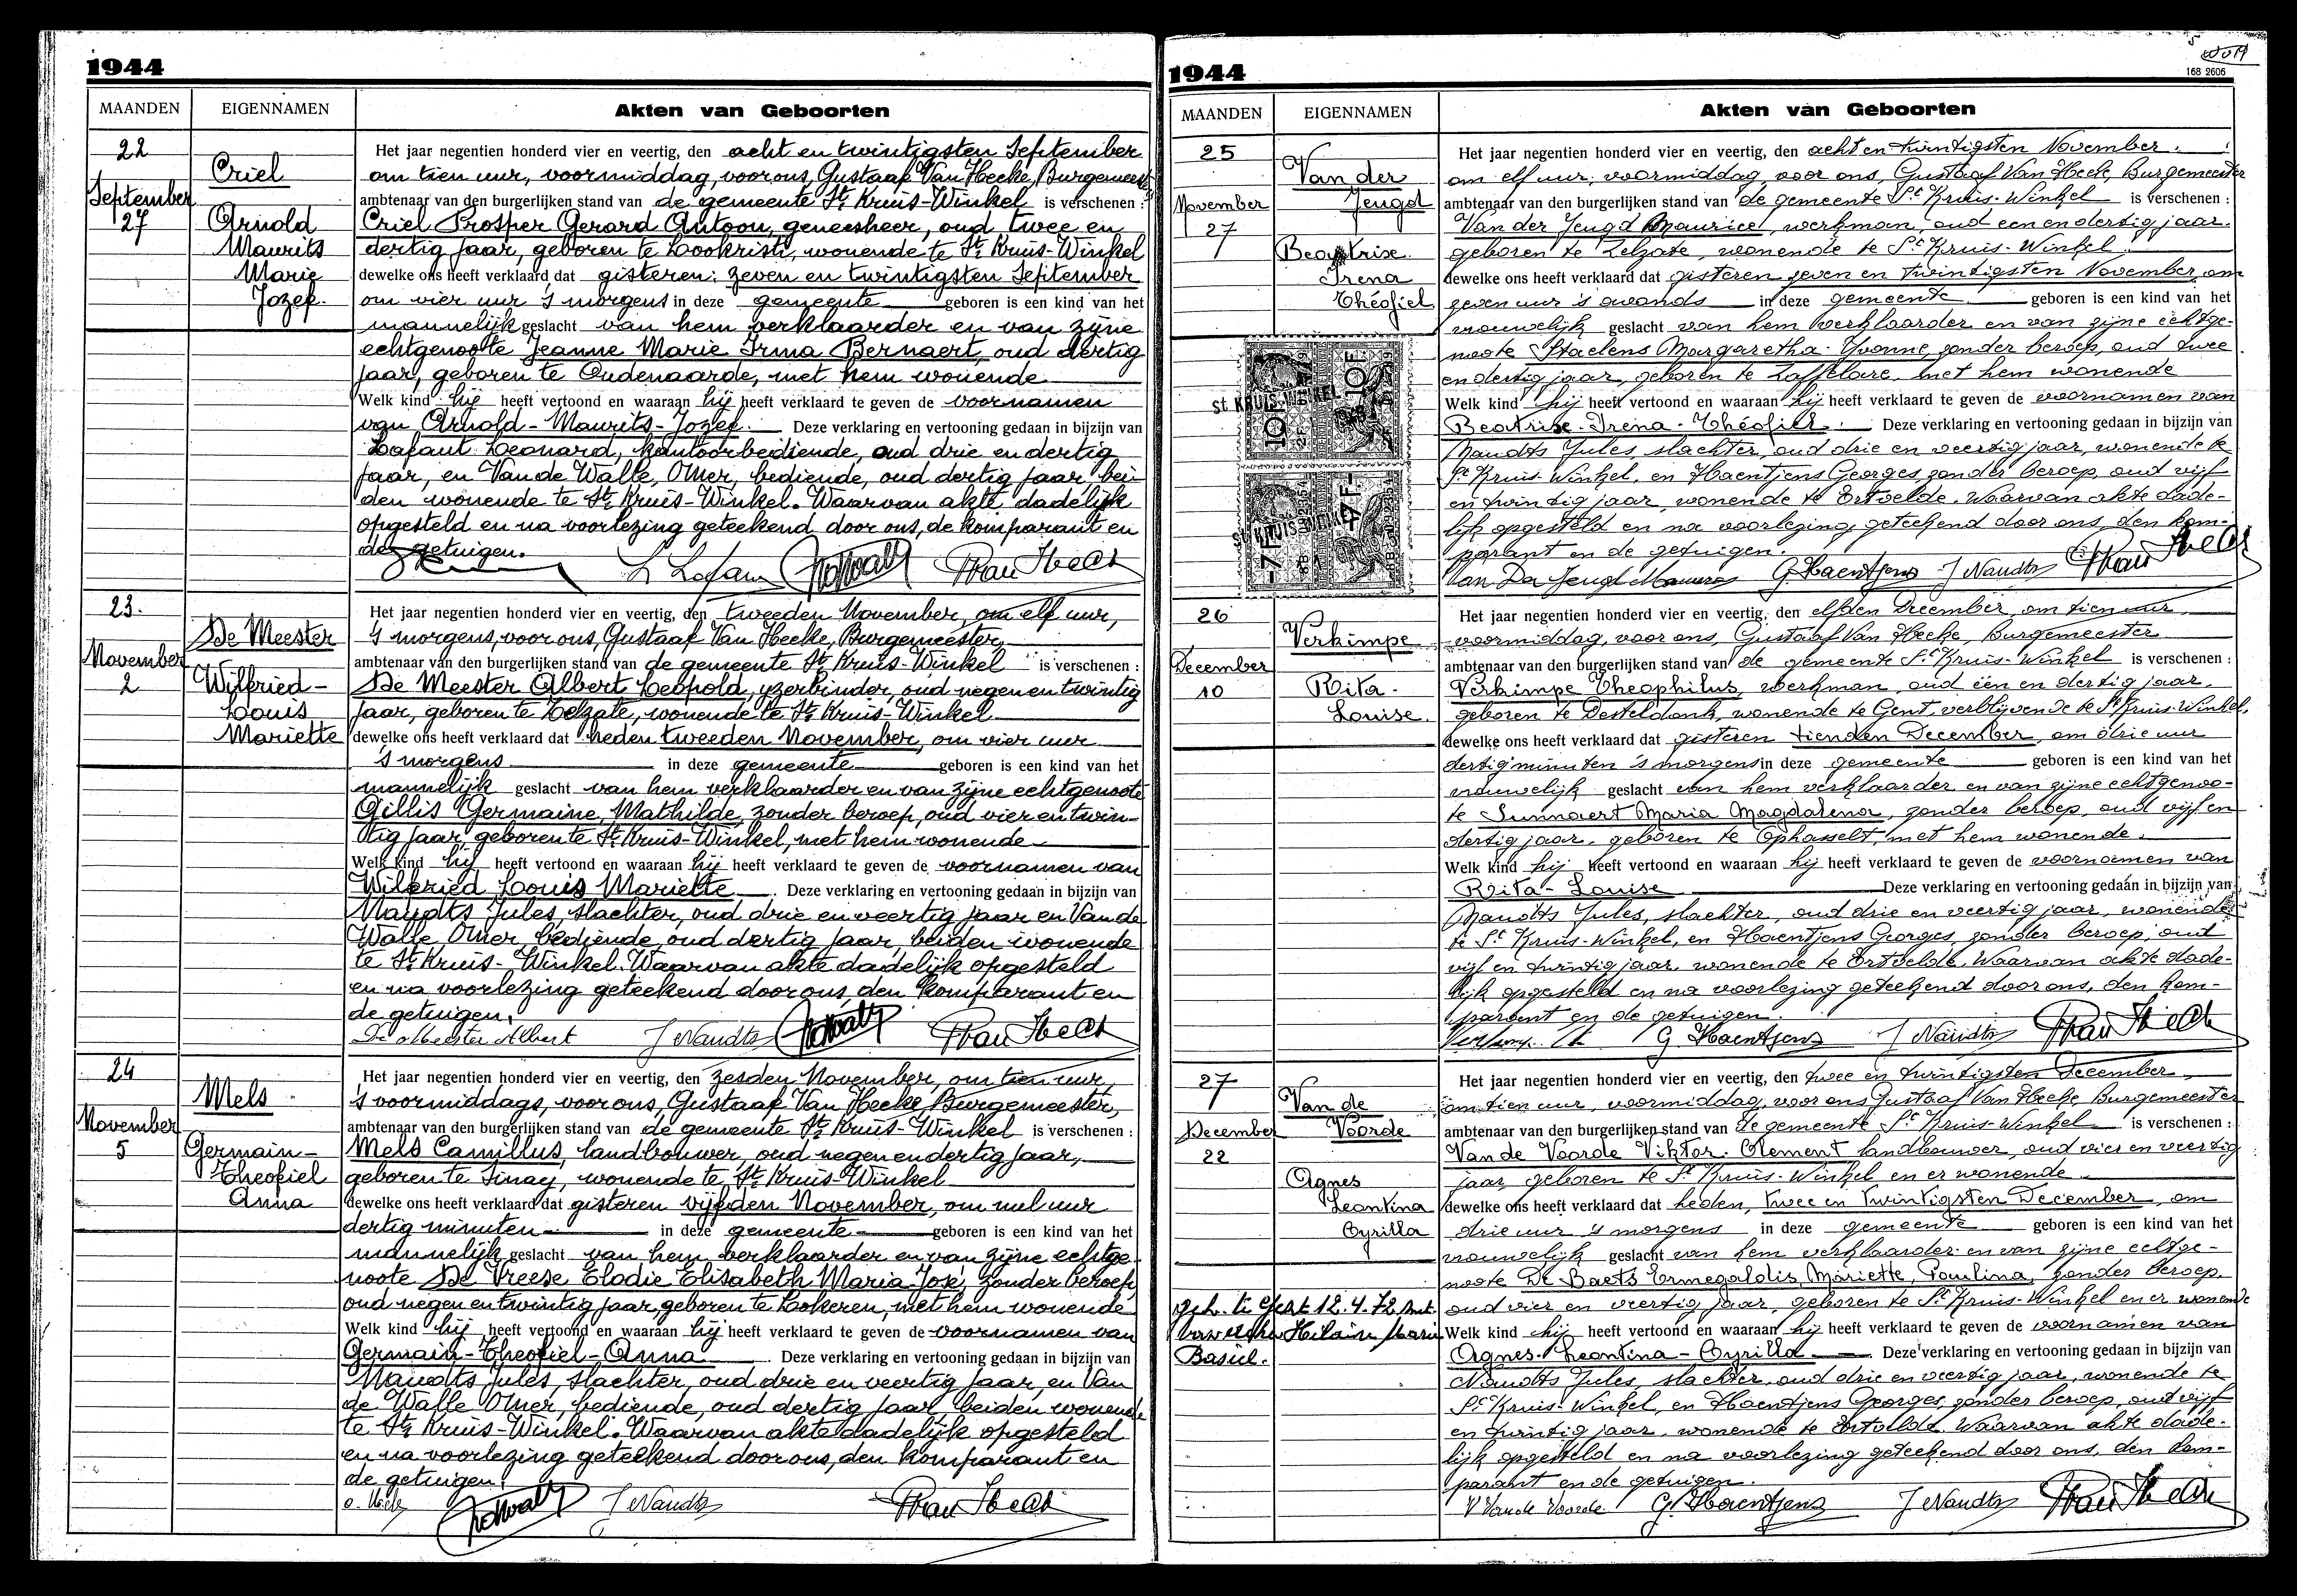 1944
MAANDEN
EIGENNAMEN
Akten van Geboorten
22
Criel
September
27
Arnold
Maurits
Marie
Jozef.
Het jaar negentien honderd vier en veertig, den acht en twintigsten September
om tien uur, voormiddag, voor ons, Gustaaf Van Hecke, Burgemeester
ambtenaar van den burgerlijken stand van de gemeente St Kruis-Winkel is verschenen :
Criel Prosper Gerard Antoon, geneesheer, oud twee en
dertig jaar, geboren te Lookristi, wonende te St Kruis-Winkel
dewelke ons heeft verklaard dat gisteren: zeven en twintigsten September
om vier uur 's morgens in deze gemeente geboren is een kind van het
mannelijk geslacht van hem verklaarder en van zijne
echtgenoote Jeanne Marie Irma Bernaert, oud dertig
jaar, geboren te Oudenaarde, met hem wonende
Welk kind hij heeft vertoond en waaraan hij heeft verklaard te geven de voornamen
van Arnold-Maurits-Jozef. Deze verklaring en vertooning gedaan in bijzijn van
Lafaut Leonard, kantoorbediende, oud drie en dertig
jaar, en Van de Walle, Omer, bediende, oud dertig jaar bei-
den wonende te St Kruis-Winkel. Waarvan akte dadelijk
opgesteld en na voorlezing geteekend door ons, de komparant en
de getuigen.
23.
De Meester
November
2
Wilfried-
Louis
Mariette
Het jaar negentien honderd vier en veertig, den tweeden November, om elf uur,
's morgens, voor ons, Gustaaf Van Hecke, Burgemeester,
ambtenaar van den burgerlijken stand van de gemeente St Kruis-Winkel is verschenen :
De Meester Albert Leopold, yzerbinder, oud negen en twintig
jaar, geboren te Zelzate, wonende te St Kruis-Winkel
dewelke ons heeft verklaard dat heden tweeden November, om vier uur
's morgens in deze gemeente geboren is een kind van het
mannelijk geslacht van hem verklaarder en van zijne echtgenoote
Gillis Germaine, Mathilde, zonder beroep, oud vier en twin-
tig jaar, geboren te St Kruis-Winkel, met hem wonende
Welk kind hij heeft vertoond en waaraan hij heeft verklaard te geven de voornamen van
Wilfried Louis Mariette. Deze verklaring en vertooning gedaan in bijzijn van
Naudts Jules, slachter, oud drie en veertig jaar en Van de
Walle Omer, bediende, oud dertig jaar, beiden wonende
te St Kruis-Winkel. Waarvan akte dadelijk opgesteld
en na voorlezing geteekend door ons, den komparant en
de getuigen.
De Meester Albert J Naudts
24
Mels
November
5
Germain-
Theofiel
Anna
Het jaar negentien honderd vier en veertig, den zesden November, om tien uur,
's voormiddags, voor ons, Gustaaf Van Hecke, Burgemeester,
ambtenaar van den burgerlijken stand van de gemeente St Kruis-Winkel is verschenen :
Mels Camillus, landbouwer, oud negen en dertig jaar,
geboren te Sinay, wonende te St Kruis-Winkel
dewelke ons heeft verklaard dat gisteren vijfden November, om uur
dertig minuten in deze gemeente geboren is een kind van het
mannelijk geslacht van hem verklaarder en van zijne echtge-
noote De Vreese Elodie Elisabeth Maria-José, zonder beroep,
oud negen en twintig jaar, geboren te Lokeren, met hem wonende
Welk kind hij heeft vertoond en waaraan hij heeft verklaard te geven de voornamen van
Germain-Theofiel-Anna. Deze verklaring en vertooning gedaan in bijzijn van
Naudts Jules, slachter, oud drie en veertig jaar, en Van
de Walle Omer, bediende, oud dertig jaar, beiden wonende
te St Kruis-Winkel. Waarvan akte dadelijk opgesteld
en na voorlezing geteekend door ons, den komparant en
de getuigen.
J Naudts
1944
168 2606
MAANDEN
EIGENNAMEN
Akten van Geboorten
25
Van der
Jeugd
November
27
Beatrise.
Irena
Théofiel
10 F
ST KRUIS-WINKEL
7 F
Het jaar negentien honderd vier en veertig, den acht en twintigsten November.
om elf uur, voormiddag, voor ons, Gustaaf Van Hecke, Burgemeester
ambtenaar van den burgerlijken stand van de gemeente St Kruis-Winkel is verschenen :
Van der Jeugd Maurice, werkman, oud een en dertig jaar.
geboren te Zelzate, wonende te St Kruis-Winkel.
dewelke ons heeft verklaard dat gisteren zeven en twintigsten November, om
zeven uur 's avonds in deze gemeente geboren is een kind van het
vrouwelijk geslacht van hem verklaarder en van zijne echtge-
noote Staelens Margaretha-Yvonne, zonder beroep, oud twee
en dertig jaar, geboren te Zaffelare, met hem wonende
Welk kind hij heeft vertoond en waaraan hij heeft verklaard te geven de voornamen van
Beatrise-Irena-Théofiel. Deze verklaring en vertooning gedaan in bijzijn van
Naudts Jules, slachter, oud drie en veertig jaar, wonende te
St Kruis-Winkel, en Haentjens Georges, zonder beroep, oud vijf
en twintig jaar, wonende te Ertvelde. Waarvan akte dade-
lijk opgesteld en na voorlezing geteekend door ons, den kom-
parant en de getuigen.
Van Der Jeugd Maurice G Haentjens J Naudts
26
Verkimpe
December
10
Rita-
Louise.
Het jaar negentien honderd vier en veertig, den elfden December, om tien uur,
voormiddag, voor ons, Gustaaf Van Hecke, Burgemeester
ambtenaar van den burgerlijken stand van de gemeente St Kruis-Winkel is verschenen :
Verkimpe Theophilus, werkman, oud één en dertig jaar,
geboren te Desteldonk, wonende te Gent, verblijvende te St Kruis-Winkel,
dewelke ons heeft verklaard dat gisteren tienden December, om drie uur
dertig minuten 's morgens in deze gemeente geboren is een kind van het
vrouwelijk geslacht van hem verklaarder en van zijne echtgenoo-
te Sunnaert Maria Magdalena, zonder beroep, oud vijf en
dertig jaar, geboren te Ophasselt, met hem wonende.
Welk kind hij heeft vertoond en waaraan hij heeft verklaard te geven de voornamen van
Rita-Louise Deze verklaring en vertooning gedaan in bijzijn van
Naudts Jules, slachter, oud drie en veertig jaar, wonende
te St Kruis-Winkel, en Haentjens Georges, zonder beroep, oud
vijf en twintig jaar, wonende te Ertvelde. Waarvan akte dade-
lijk opgesteld en na voorlezing geteekend door ons, den kom-
parant en de getuigen.
G. Haentjens J Naudts
27
Van de
Voorde
December
22
Agnes
Leontina
Cyrilla
geh. te Gent 12.4.72 met
Hilaire Marie
Basiel.
Het jaar negentien honderd vier en veertig, den twee en twintigsten December,
om tien uur, voormiddag, voor ons Gustaaf Van Hecke Burgemeester
ambtenaar van den burgerlijken stand van de gemeente St Kruis-Winkel is verschenen :
Van de Voorde Viktor-Clement landbouwer, oud vier en veertig
jaar, geboren te St Kruis-Winkel en er wonende
dewelke ons heeft verklaard dat heden, twee en twintigsten December, om
drie uur 's morgens in deze gemeente geboren is een kind van het
vrouwelijk geslacht van hem verklaarder en van zijne echtge-
noote De Baets Ermegaldis, Mariette, Paulina, zonder beroep,
oud vier en veertig jaar, geboren te St Kruis-Winkel en er wonende
Welk kind hij heeft vertoond en waaraan hij heeft verklaard te geven de voornamen van
Agnes-Leontina-Cyrilla. Deze verklaring en vertooning gedaan in bijzijn van
Naudts Jules, slachter, oud drie en veertig jaar, wonende te
St Kruis-Winkel, en Haentjens Georges, zonder beroep, oud vijf
en twintig jaar, wonende te Ertvelde. Waarvan akte dade-
lijk opgesteld en na voorlezing geteekend door ons, den kom-
parant en de getuigen.
V Van de Voorde. G. Haentjens J Naudts